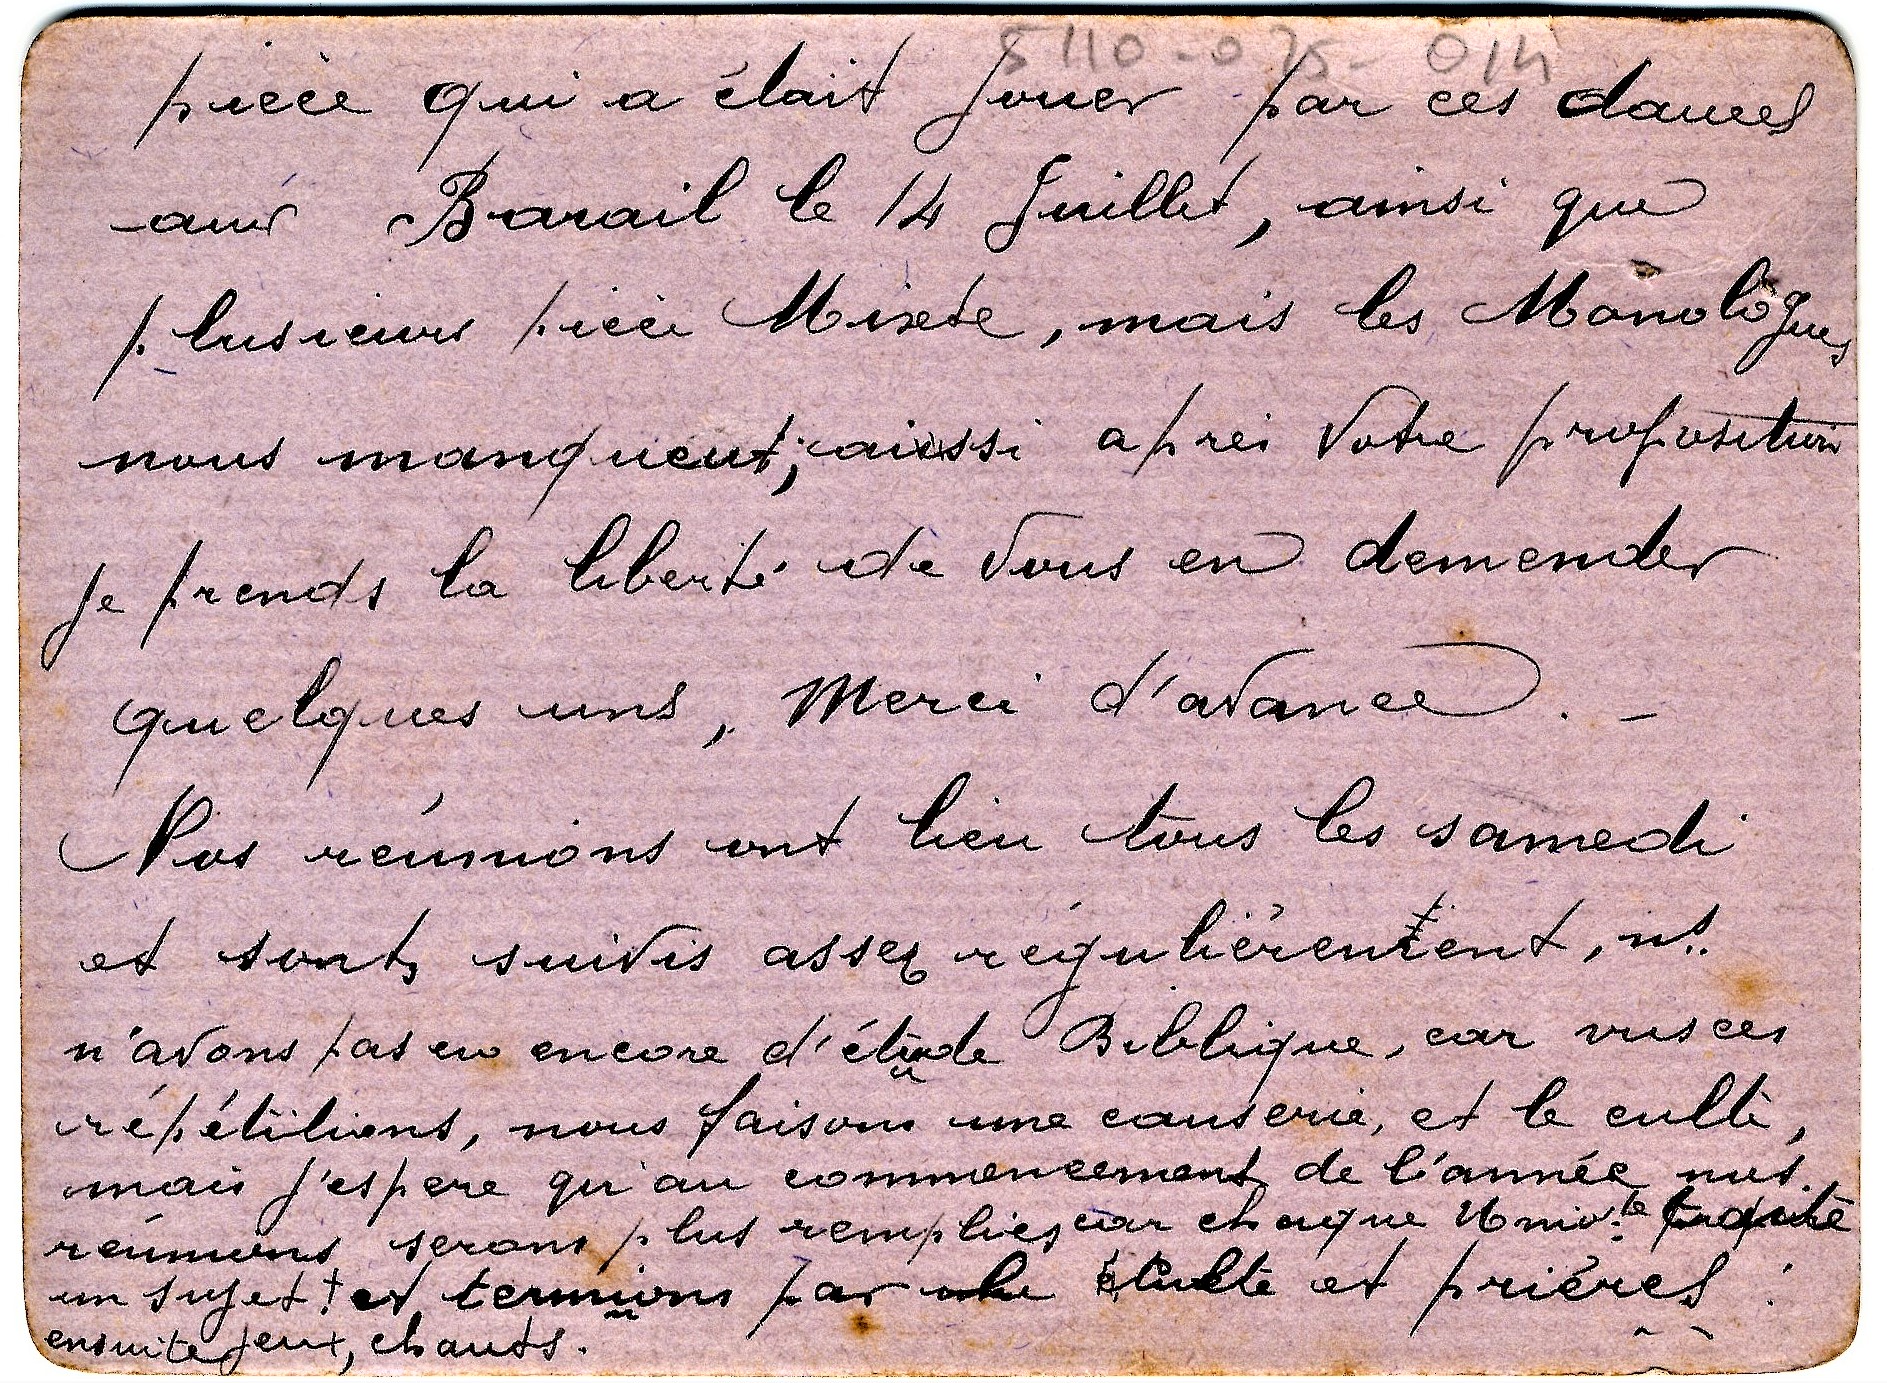 5110-075-014
pièce qui a était Jouer par ces dames
aur Barail le 14 Juillet, ainsi que
plusieurs pièce Mixte, mais les Monologues
nous manquent; aussi après Votre proposition
je prends la liberté de Vous en demender
quelques uns, Merci d'avance. -
Nos réunions ont lieu tous les samedi
et sont suivis assez régulièrement, ns.
n'avons pas eu encore d'étude Biblique, car vus ces
répétitions, nous faisons une causerie, et le culte,
mais j'espere qu'au commencement de l'année nos
réunions serons plus remplies car chaque Univ.te traite
un sujet! et termions par le Culte et prières!
ensuite jeux, chants.